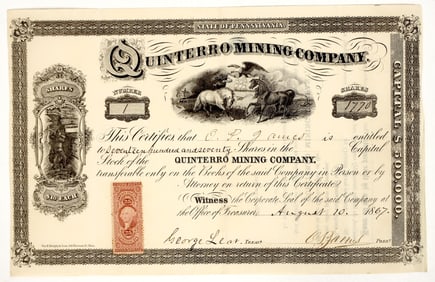 STATE OF PENNSYLVANIA
QUINTERRO MINING COMPANY.
NUMBER
1
SHARES
1770
SHARES
$10 EACH
CAPITAL $500,000.
This Certifies that C. E. James is entitled
to Seventeen hundred and seventy Shares in the Capital
Stock of the QUINTERRO MINING COMPANY.
transferable only on the Books of the said Company in Person or by
Attorney on return of this Certificate.
Witness the Corporate Seal of the said Company at
the Office of Treasurer, August 10. 1867.
George Lear, Treasr.
Presdt.